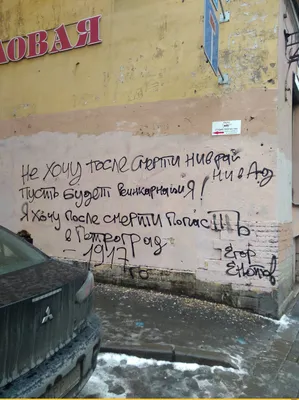 ОВАЯ
Не хочу после смерти ни в рай
ни в Ад
Пусть будет реинкарнация!
Я хочу после смерти попасть
в Петроград
1917го
Егор